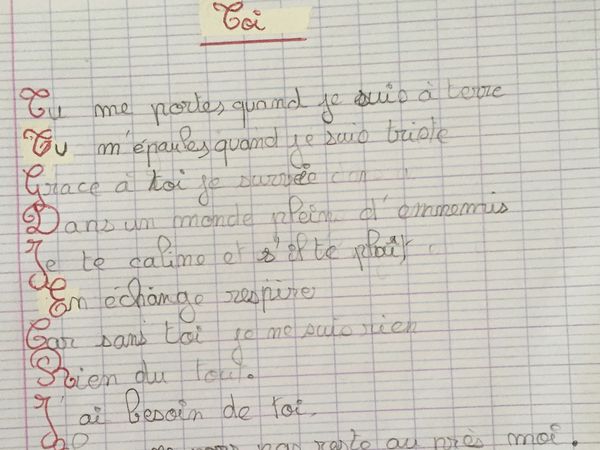 Toi
Tu me portes quand je suis à terre
Tu m'épaules quand je suis triste
Grace à toi je
Dans un monde plein d'ennemis
Je te calîme et s'il te plaît
En échange respire
Car sans toi je ne suis rien
Rien du tout.
J'ai besoin de toi.
pas reste au près moi.